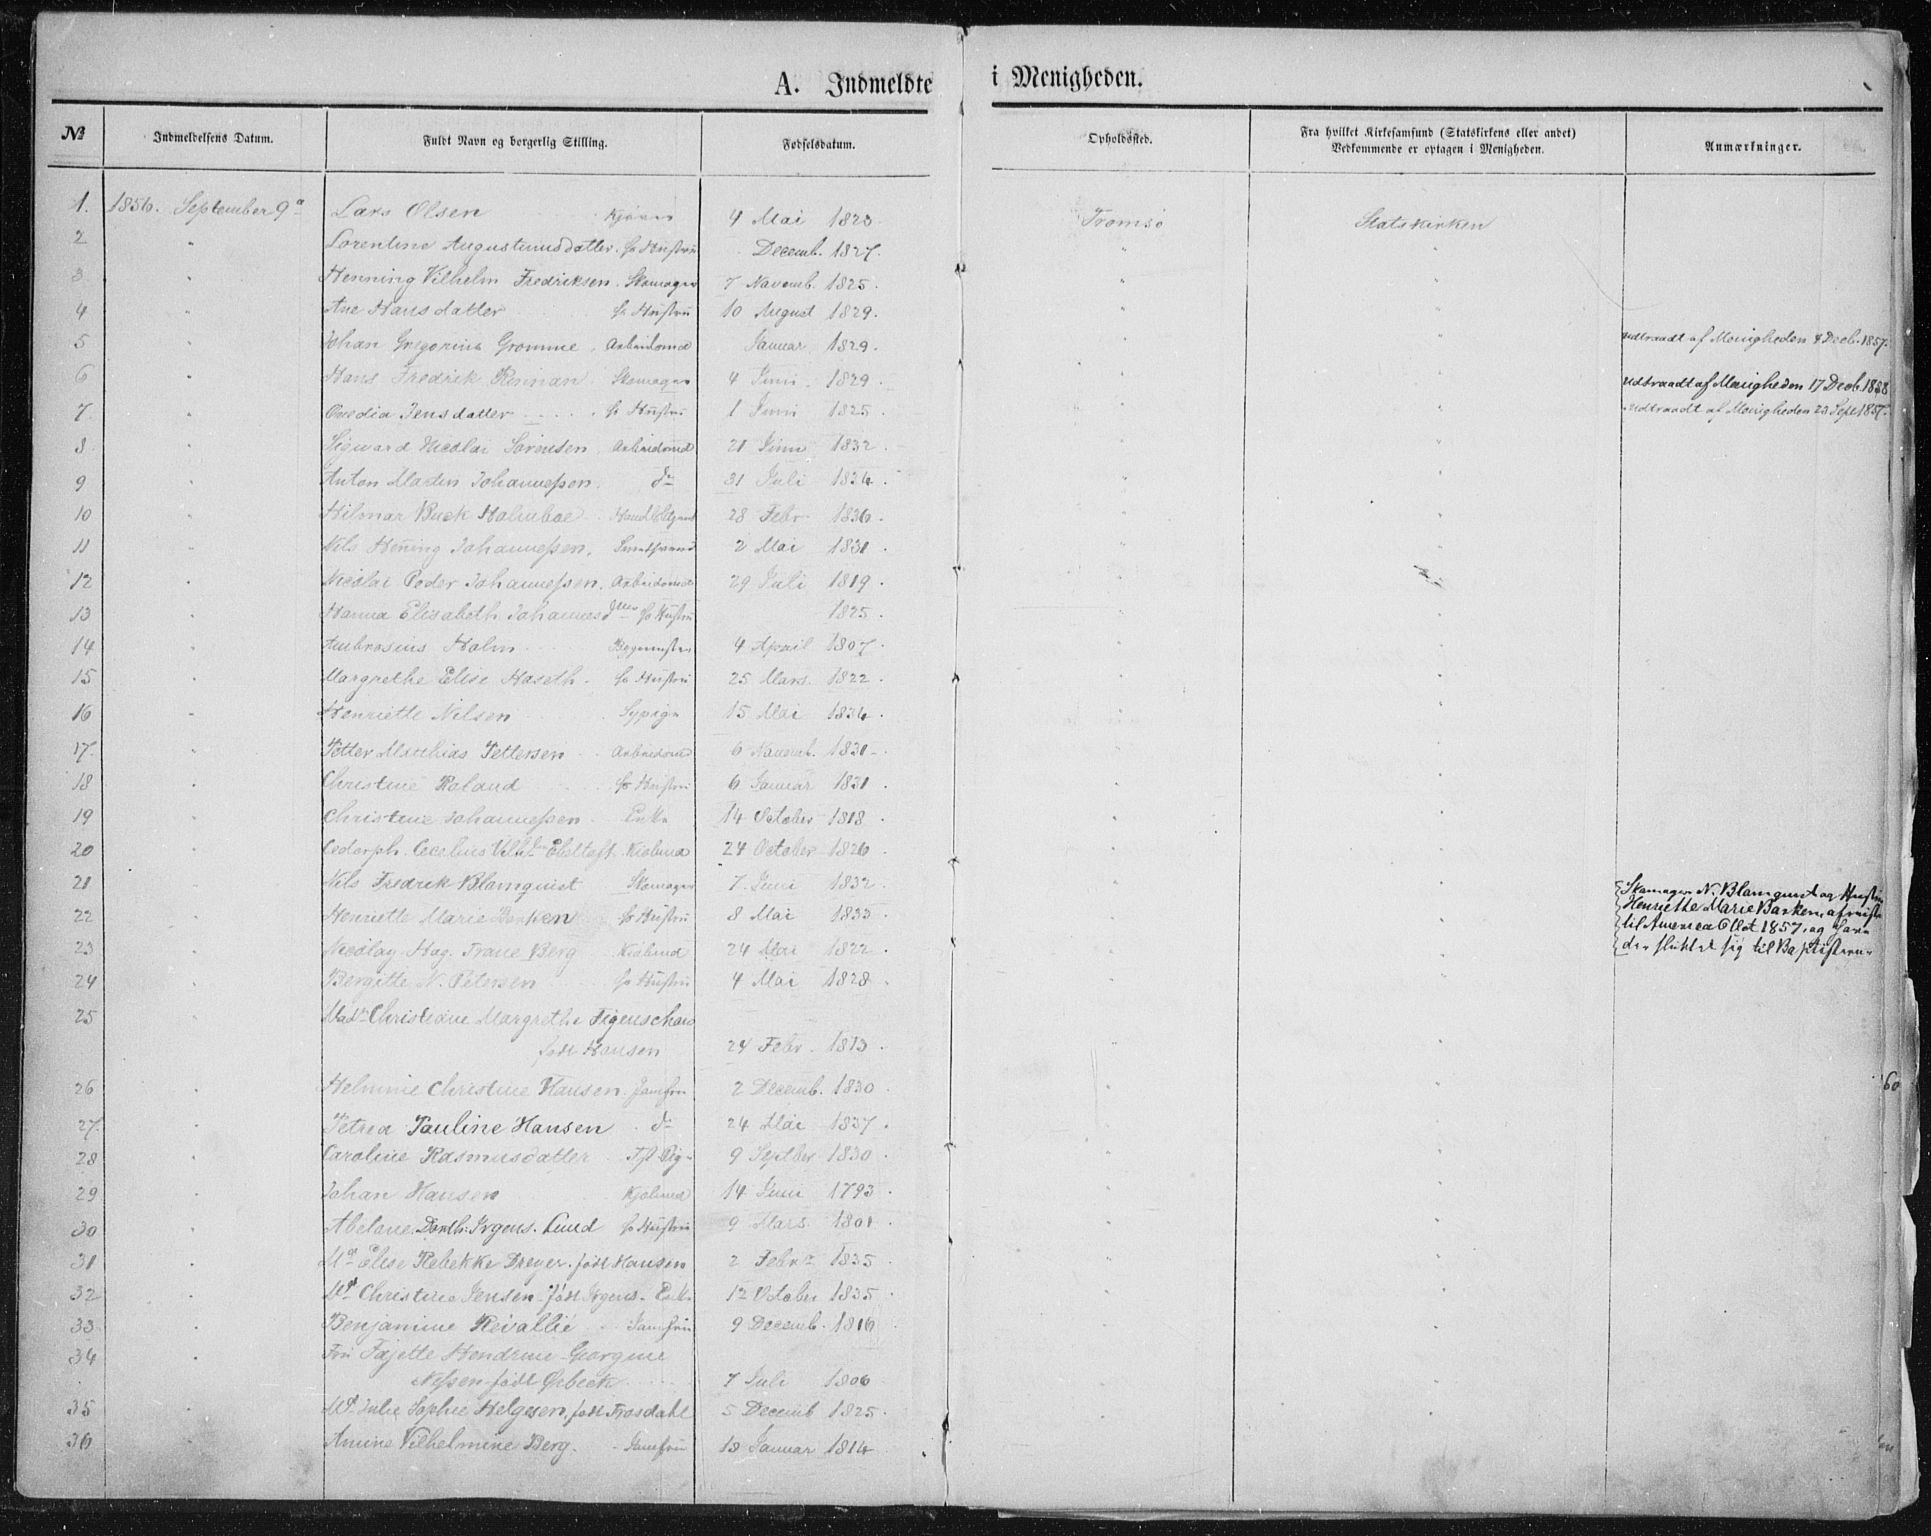 A. Indmeldte i Menigheden.
№ Indmeldelsens Datum. Fuldt Navn og borgerlig Stilling. Fødselsdatum. Opholdssted. Fra hvilket Kirkesamfund (Statskirkens eller andet) Vedkommende er optagen i Menigheden. Anmærkninger.
1. 1856. September 9 Lars Olsen 4 Mai 1823 Tromsø Statskirken
2 " Lorentine Augustinusdatter. Hustru Decemb. 1827. " "
3 " Henning Vilhelm Fredriksen. Skomager 7 Novemb. 1825. " "
4 " Ane Hansdatter Hustru 10 August 1829. " "
5 " Johan Gregorius Gromme. Arbeidsmd Januar 1829. " " Udtraadt af Menigheden 4 Decb. 1857.
6 " Hans Fredrik Rennan Skomager 4 Juni 1829 " " Udtraadt af Menigheden 17 Decb. 1858
7. " Ovedia Jensdatter Hustru 1 Juni 1825 " " Udtraadt af Menigheden 23 Sept 1857.
8 " Sigvard Nicolai Sørensen Arbeidsmd 21 Juni 1832 " "
9 " Anton Martin Johannessen. do 31 Juli 1834. " "
10 " Hilmar Buck Holmboe 28 Febr 1836. " "
11 " Nils Hening Johannessen. 2 Mai 1831 " "
12 " Nicolai Peder Johannessen. Arbeidsmd 29 Juli 1819. " "
13 " Hanna Elisabeth Johannesd Hustru 1825. " "
14 " Ambrosius Holm Bygmester 4 April 1807. " "
15 " Margrethe Elise Haseth. Hustru 25 Mars. 1822. " "
16 " Henriette Nilsen Sypige 15 Mai 1834. " "
17. " Petter Mathias Pettersen Arbeidsmd 6 Novemb. 1830 " "
18 " Christine Roland Hustru 6 Januar 1831. " "
19 " Christine Johannessen. Enke 14 October 1818. " "
20 " Ebeltoft. 24 October 1826. " "
21 " Nils Fredrik Blomquist Skomager 7. Juni 1832. " " Skomager N. Blomquist og Hustru
22 " Henriette Marie Barken Hustru 8 Mai 1833 " " Henriette Marie Barken, afreiste
23 " Nicolay Hag. Trane Berg 24 Mai 1822. " " til America Oct 1857, og have
24 " Bergitte N. Petersen Hustru 4 Mai 1828 " " der sluttet sig til Baptisterne
25 " Mad. Christiane Margrethe Figenschau
født Hansen 24 Febr. 1813. " "
26 " Helmine Christine Hansen. Jomfru 2 Decemb. 1830 " "
27. " Petrea Pauline Hansen do 24 Mai 1837. " "
28 " Caroline Rasmusdatter 9 Septber 1830 " "
29 " Johan Hansen 14 Juni 1793. " "
30 " Abelone Dorth. Irgens. Lund Hustru 9 Mars 1801 " "
31 " Md Elise Rebekke Dreyer. født Hansen 2 Febr 1835 " "
32 " Md Christine Jensen født Irgens. Enke 12 October 1835 " "
33 " Benjamine Revallie Jomfru 9 Decemb. 1816 " "
34 " Fru Fajette Hendrine Georgine
Nissen født Ørbeck 7 Juli 1806 " "
35 " Md Julie Sophie Helgesen, født Frosdahl 5 Decemb 1825. " "
36 " Amine Vilhelmine Berg. Jomfru 18 Januar 1814 " "
60